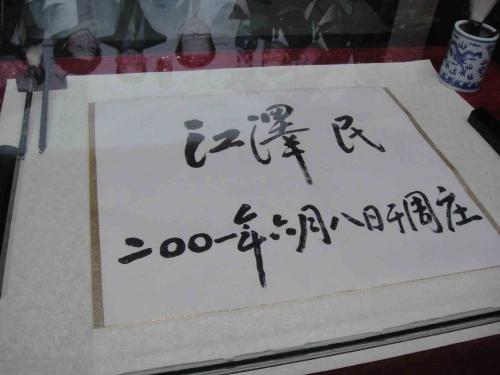 江澤民
二〇〇一年六月八日于周庄